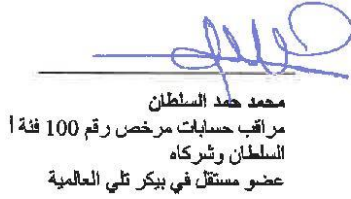 محمد حمد السلطان
مراقب حسابات مرخص رقم 100 فئة أ
السلطان وشركاه
عضو مستقل في بيكر تلي العالمية